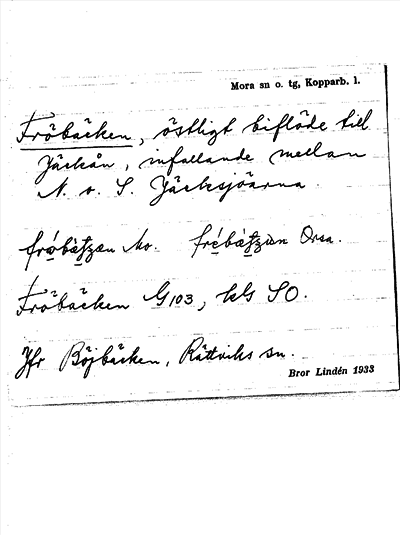 Mora sn o. tg, Kopparb. l.
Fröbäcken, östligt biflöde till
Jäckån, infallande mellan
N. o. S. Jäcksjöarna.
Mo. Orsa.
Fröbäcken G103, kls SO.
Jfr Böjbäcken, Rättviks sn.
Bror Lindén 1933